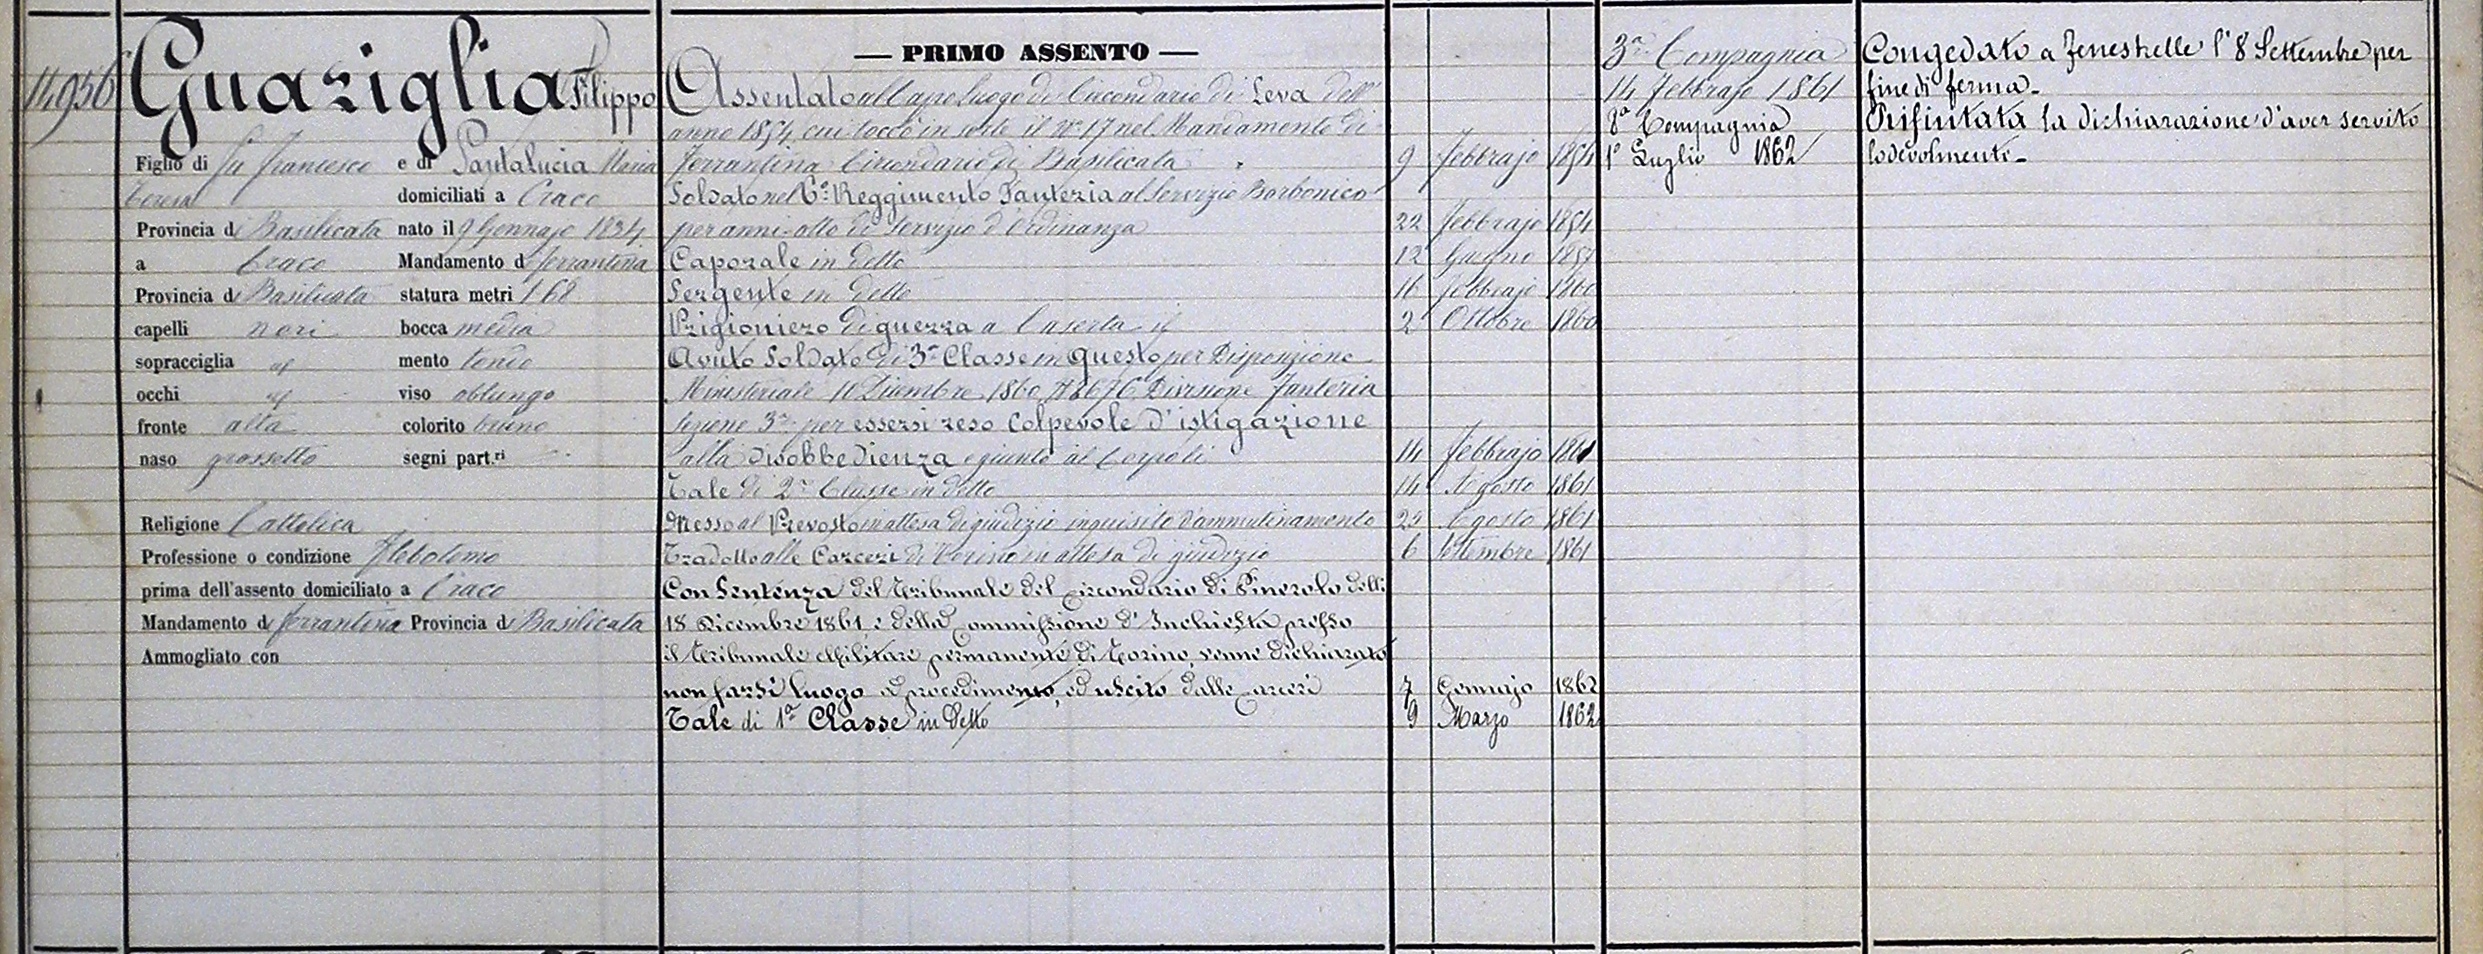 14956
Guariglia Filippo
Figlio di fu Francesco e di Santalucia Maria
Teresa domiciliati a Craco
Provincia di Basilicata nato il 9 Gennajo 1834
a Craco Mandamento di Ferrantina
Provincia di Basilicata statura metri 1.68
capelli neri bocca media
sopracciglia id mento tondo
occhi id viso oblungo
fronte alta colorito bruno
naso grossetto segni part.ri
Religione Cattolica
Professione o condizione Flebotomo
prima dell'assento domiciliato a Craco
Mandamento di Ferrantina Provincia di Basilicata
Ammogliato con
— PRIMO ASSENTO —
Assentato al Capo luogo di Circondario di Leva dell'
anno 1854 cui toccò in sorte il N° 17 nel Mandamento di
Ferrantina Circondario di Basilicata 9 Febbrajo 1854
Soldato nel 6° Reggimento Fanteria al Servizio Borbonico
per anni otto di servizio d'ordinanza 22 Febbrajo 1854
Caporale in detto 12 Giugno
Sergente in detto 16 Febbrajo 1860
Prigioniero di guerra a Caserta 2 Ottobre 1860
Avuto Soldato di 3a Classe in questo per Disposizione
Ministeriale 11 Dicembre 1860 N 8676 Divisione Fanteria
Sezione 3a per essersi reso Colpevole d'istigazione
alla disobbedienza e giunto al Corpo li 14 Febbrajo 1861
Tale di 2a Classe in detto 14 Agosto 1861
Messo al Prevosto in attesa di giudizio inquisito d'ammutinamento Agosto 1861
Tradotto alle Carceri di Torino in attesa di giudizio 6 Settembre 1861
Con Sentenza del Tribunale del Circondario di Pinerolo delli
18 Dicembre 1861 e della Commissione d'Inchiesta presso
il Tribunale Militare permanente di Torino, venne dichiarato
non farsi luogo a procedimento, ed uscito dalle carceri 7 Gennajo 1862
Tale di 1a Classe in detto 9 Marzo 1862
3a Compagnia
14 Febbrajo 1861
8a Compagnia
1° Luglio 1862
Congedato a Fenestrelle l'8 Settembre per
fine di ferma.
Rifiutata la dichiarazione d'aver servito
lodevolmente.